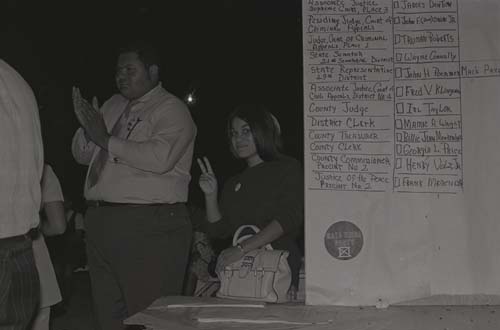 Associate Justice
Supreme Court, Place 3
Presiding Judge, Court of
Criminal Appeals
Judge, Court of Criminal
Appeals Place 1
State Senator
21st Senatorial District
State Representative
Associate Justice, Court of
Civil Appeals, District No 4
County Judge
District Clerk
County Treasurer
County Clerk
County Commissioner
Precinct No 2
Justice of the Peace
Precinct No 2
James Denton
Truman Roberts
Wayne Connally
John H
Fred V. Klingeman
Irl Taylor
Mamie A. Wright
Georgia L. Price
Henry Volz Jr
Frank
Raza Unida
Party